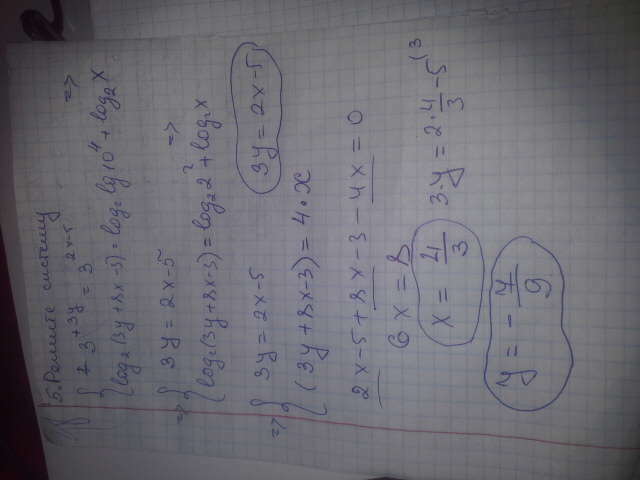 5. Решите систему
{ 3^{+3y} = 3^{2x-5} =>
log₂(3y+8x-3) = log₂ lg 10⁴ + log₂ x
=> { 3y = 2x-5 =>
log₂(3y+8x-3) = log₂ 2² + log₂ x
=> { 3y = 2x-5 3y = 2x-5
(3y+8x-3) = 4·x
2x-5+8x-3-4x = 0
6x = 8
x = 4/3 3·y = 2·4/3 -5 (3
y = -7/9